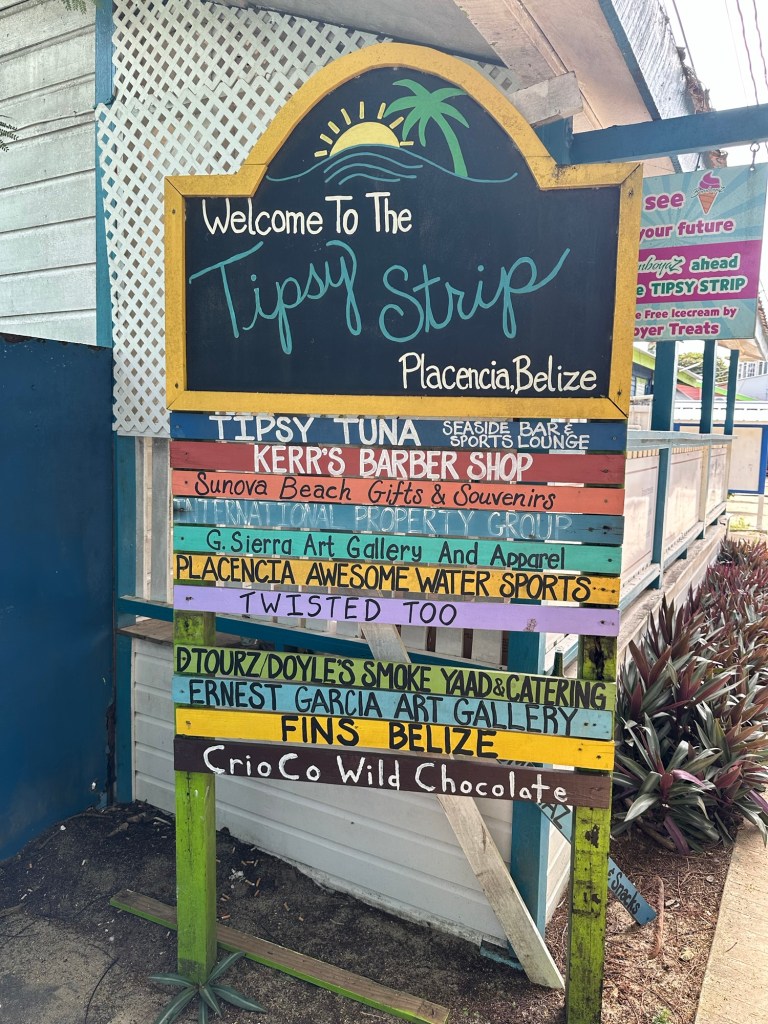 Welcome To The
Tipsy Strip
Placencia, Belize
TIPSY TUNA SEASIDE BAR &
SPORTS LOUNGE
KERR'S BARBER SHOP
Sunova Beach Gifts & Souvenirs
INTERNATIONAL PROPERTY GROUP
G. Sierra Art Gallery And Apparel
PLACENCIA AWESOME WATER SPORTS
TWISTED TOO
DTOURZ/DOYLE'S SMOKE YAAD & CATERING
ERNEST GARCIA ART GALLERY
FINS BELIZE
CrioCo Wild Chocolate
& Snacks
see
your future
ahead
TIPSY STRIP
Free Icecream by
Treats